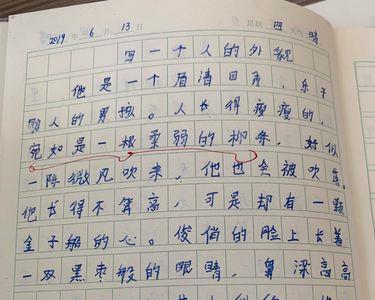 2019年6月13日 星期四 天气晴
写一个人的外貌
他是一个眉清目秀，乐于
助人的男孩。人长得瘦瘦的，
宛如是一根柔弱的柳条，好似
一阵微风吹来，他也会被吹落。
他长得不算高，可是却有一颗
金子般的心。俊俏的脸上长着
一双黑枣般的眼睛，鼻梁高高